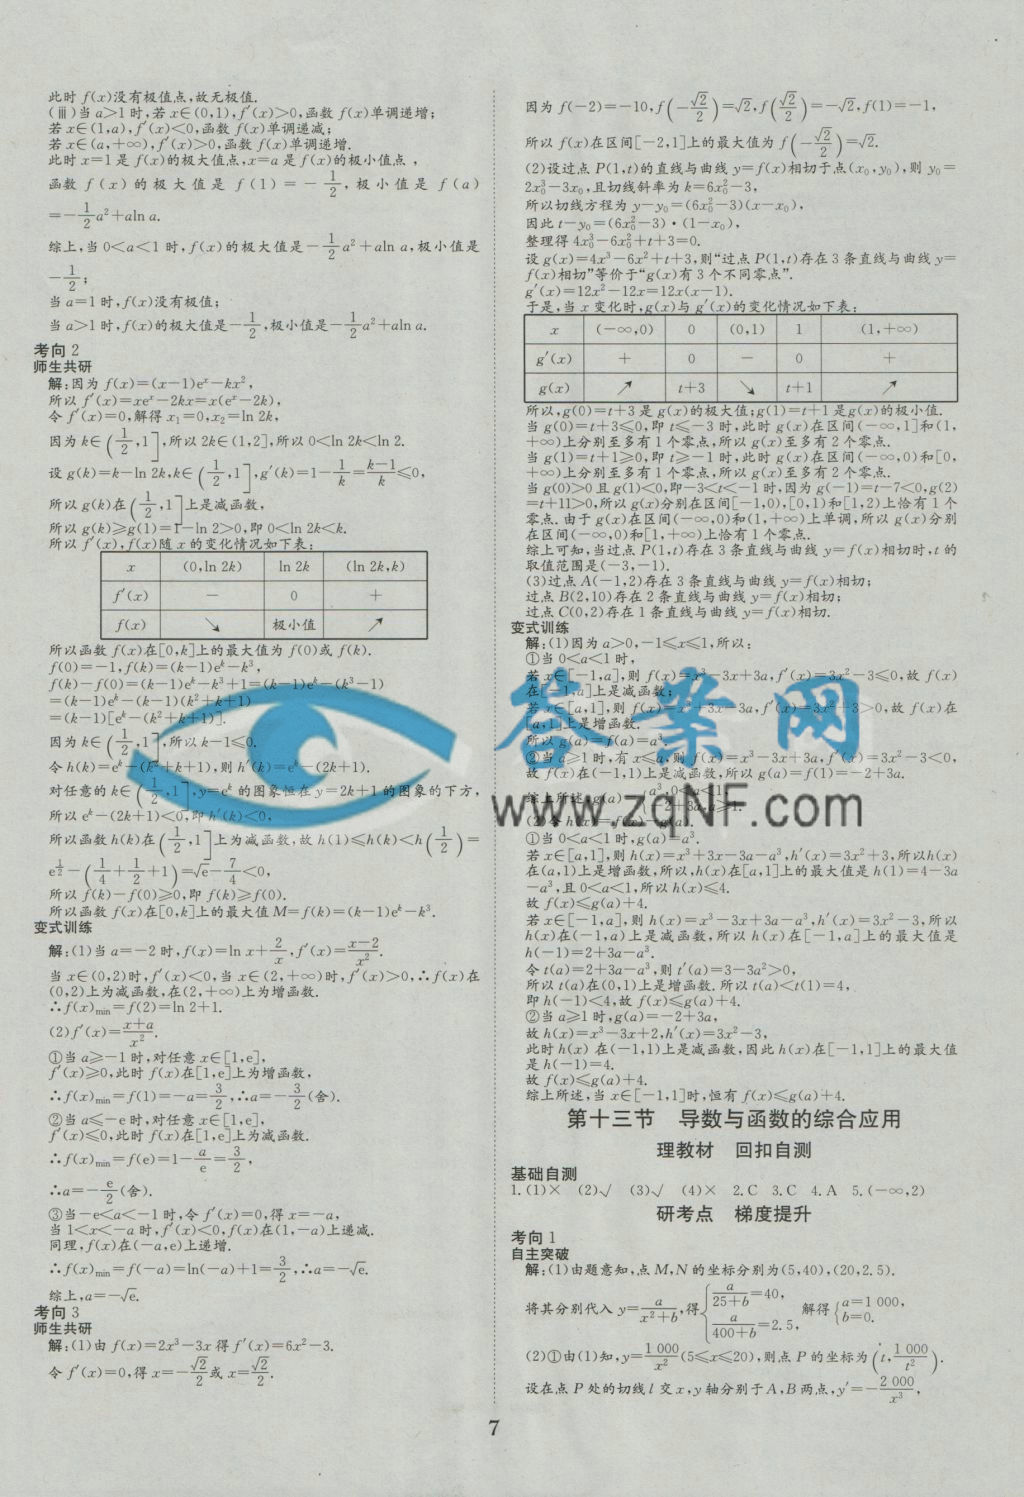 此时 f(x)没有极值点,故无极值.
(ⅲ)当 a>1 时,若 x∈(0,1),f′(x)>0,函数 f(x)单调递增;
若 x∈(1,a),f′(x)<0,函数 f(x)单调递减;
若 x∈(a,+∞),f′(x)>0,函数 f(x)单调递增.
此时 x=1 是 f(x)的极大值点,x=a 是 f(x)的极小值点,
函数 f(x)的极大值是 f(1)=-1/2,极小值是 f(a)
=-1/2a²+aln a.
综上,当 0<a<1 时,f(x)的极大值是-1/2a²+aln a,极小值是
-1/2;
当 a=1 时,f(x)没有极值;
当 a>1 时,f(x)的极大值是-1/2,极小值是-1/2a²+aln a.
考向 2
师生共研
解:因为 f(x)=(x-1)eˣ-kx²,
所以 f′(x)=xeˣ-2kx=x(eˣ-2k),
令 f′(x)=0,解得 x₁=0,x₂=ln 2k,
因为 k∈(1/2,1],所以 2k∈(1,2],所以 0<ln 2k<ln 2.
设 g(k)=k-ln 2k,k∈(1/2,1],g′(k)=1-1/k=(k-1)/k≤0,
所以 g(k)在(1/2,1]上是减函数,
所以 g(k)≥g(1)=1-ln 2>0,即 0<ln 2k<k.
所以 f′(x),f(x)随 x 的变化情况如下表:
x (0,ln 2k) ln 2k (ln 2k,k)
f′(x) - 0 +
f(x) ↘ 极小值 ↗
所以函数 f(x)在[0,k]上的最大值为 f(0)或 f(k).
f(0)=-1,f(k)=(k-1)eᵏ-k³,
f(k)-f(0)=(k-1)eᵏ-k³+1=(k-1)eᵏ-(k³-1)
=(k-1)eᵏ-(k-1)(k²+k+1)
=(k-1)[eᵏ-(k²+k+1)].
因为 k∈(1/2,1],所以 k-1≤0.
令 h(k)=eᵏ-(k²+k+1),则 h′(k)=eᵏ-(2k+1).
对任意的 k∈(1/2,1],y=eᵏ 的图象恒在 y=2k+1 的图象的下方,
所以 eᵏ-(2k+1)<0,即 h′(k)<0,
所以函数 h(k)在(1/2,1]上为减函数,故 h(1)≤h(k)<h(1/2)=
e^(1/2)-(1/4+1/2+1)=√e-7/4<0,
所以 f(k)-f(0)≥0,即 f(k)≥f(0).
所以函数 f(x)在[0,k]上的最大值 M=f(k)=(k-1)eᵏ-k³.
变式训练
解:(1)当 a=-2 时,f(x)=ln x+2/x,f′(x)=(x-2)/x².
当 x∈(0,2)时,f′(x)<0,当 x∈(2,+∞)时,f′(x)>0,∴f(x)在
(0,2)上为减函数,在(2,+∞)上为增函数.
∴f(x)min=f(2)=ln 2+1.
(2)f′(x)=(x+a)/x².
①当 a≥-1 时,对任意 x∈[1,e],
f′(x)≥0,此时 f(x)在[1,e]上为增函数,
∴f(x)min=f(1)=-a=3/2,∴a=-3/2(舍).
②当 a≤-e 时,对任意 x∈[1,e],
f′(x)≤0,此时 f(x)在[1,e]上为减函数.
∴f(x)min=f(e)=1-a/e=3/2,
∴a=-e/2(舍).
③当-e<a<-1 时,令 f′(x)=0,得 x=-a,
当 1<x<-a 时,f′(x)<0,f(x)在(1,-a)上递减.
同理,f(x)在(-a,e)上递增.
∴f(x)min=f(-a)=ln(-a)+1=3/2,∴a=-√e.
综上,a=-√e.
考向 3
师生共研
解:(1)由 f(x)=2x³-3x 得 f′(x)=6x²-3.
令 f′(x)=0,得 x=-√2/2或 x=√2/2.
因为 f(-2)=-10,f(-√2/2)=√2,f(√2/2)=-√2,f(1)=-1,
所以 f(x)在区间[-2,1]上的最大值为 f(-√2/2)=√2.
(2)设过点 P(1,t)的直线与曲线 y=f(x)相切于点(x₀,y₀),则 y₀=
2x₀³-3x₀,且切线斜率为 k=6x₀²-3,
所以切线方程为 y-y₀=(6x₀²-3)(x-x₀),
因此 t-y₀=(6x₀²-3)·(1-x₀),
整理得 4x₀³-6x₀²+t+3=0.
设 g(x)=4x³-6x²+t+3,则“过点 P(1,t)存在 3 条直线与曲线 y=
f(x)相切”等价于“g(x)有 3 个不同零点”.
g′(x)=12x²-12x=12x(x-1).
于是,当 x 变化时,g(x)与 g′(x)的变化情况如下表:
x (-∞,0) 0 (0,1) 1 (1,+∞)
g′(x) + 0 - 0 +
g(x) ↗ t+3 ↘ t+1 ↗
所以,g(0)=t+3 是 g(x)的极大值;g(1)=t+1 是g(x)的极小值.
当 g(0)=t+3≤0,即 t≤-3 时,此时 g(x)在区间(-∞,1]和(1,
+∞)上分别至多有 1 个零点,所以 g(x)至多有 2 个零点.
当 g(1)=t+1≥0,即 t≥-1 时,此时 g(x)在区间(-∞,0)和[0,
+∞)上分别至多有 1 个零点,所以 g(x)至多有 2 个零点.
当 g(0)>0 且 g(1)<0,即-3<t<-1 时,因为 g(-1)=t-7<0,g(2)
=t+11>0,所以 g(x)分别在区间[-1,0),[0,1)和[1,2)上恰有 1 个
零点.由于 g(x)在区间(-∞,0)和(1,+∞)上单调,所以 g(x)分别
在区间(-∞,0)和[1,+∞)上恰有 1 个零点.
综上可知,当过点 P(1,t)存在 3 条直线与曲线 y=f(x)相切时,t 的
取值范围是(-3,-1).
(3)过点 A(-1,2)存在 3 条直线与曲线 y=f(x)相切;
过点 B(2,10)存在 2 条直线与曲线 y=f(x)相切;
过点 C(0,2)存在 1 条直线与曲线 y=f(x)相切.
变式训练
解:(1)因为 a>0,-1≤x≤1,所以:
①当 0<a<1 时,
若 x∈[-1,a],则 f(x)=x³-3x+3a,f′(x)=3x²-3≤0,故 f(x)
在[-1,a]上是减函数;
若 x∈[a,1],则 f(x)=x³+3x-3a,f′(x)=3x²+3>0,故 f(x)在
[a,1]上是增函数.
所以 g(a)=f(a)=a³.
②当 a≥1 时,有 x≤a,则 f(x)=x³-3x+3a,f′(x)=3x²-3<0,
故 f(x)在(-1,1)上是减函数,所以 g(a)=f(1)=-2+3a.
综上所述,g(a)={a³,0<a<1, -2+3a,a≥1.
(2)令 h(x)=f(x)-g(a).
①当 0<a<1 时,g(a)=a³.
若 x∈[a,1],则 h(x)=x³+3x-3a-a³,h′(x)=3x²+3,所以h(x)
在(a,1)上是增函数,所以,h(x)在[a,1]上的最大值是 h(1)=4-3a
-a³,且 0<a<1,所以 h(x)≤4.
故 f(x)≤g(a)+4.
若 x∈[-1,a],则 h(x)=x³-3x+3a-a³,h′(x)=3x²-3,所以
h(x)在(-1,a)上是减函数,所以 h(x)在[-1,a]上的最大值是
h(-1)=2+3a-a³.
令 t(a)=2+3a-a³,则 t′(a)=3-3a²>0,
所以 t(a)在(0,1)上是增函数.所以 t(a)<t(1)=4,
即 h(-1)<4,故 f(x)≤g(a)+4.
②当 a≥1 时,g(a)=-2+3a,
故 h(x)=x³-3x+2,h′(x)=3x²-3,
此时 h(x)在(-1,1)上是减函数,因此 h(x)在[-1,1]上的最大值
是 h(-1)=4.
故 f(x)≤g(a)+4.
综上所述,当 x∈[-1,1]时,恒有 f(x)≤g(a)+4.
第十三节 导数与函数的综合应用
理教材 回扣自测
基础自测
1.(1)× (2)√ (3)√ (4)× 2.C 3.C 4.A 5.(-∞,2)
研考点 梯度提升
考向 1
自主突破
解:(1)由题意知,点 M,N 的坐标分别为(5,40),(20,2.5).
将其分别代入 y=a/(x²+b),得{a/(25+b)=40, a/(400+b)=2.5, 解得{a=1 000, b=0.
(2)①由(1)知,y=1 000/x²(5≤x≤20),则点 P 的坐标为(t,1 000/t²).
设在点 P 处的切线 l 交 x,y 轴分别于 A,B 两点,y′=-2 000/x³,
7
答案网
www.zqNF.com